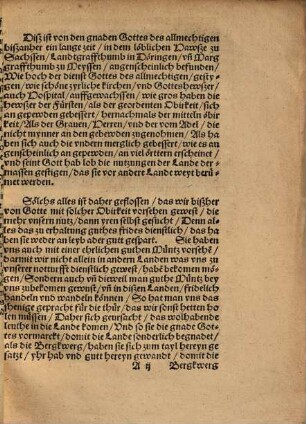 Diß ist von den gnaden Gottes des allmechtigen
bißanher ein lange zeit / in dem löblichen Hawße zu
Sachssen / Landtgraffthumb in Döringen / vñ Marg
graffthumb zu Meyssen / angenscheinlich befunden /
Wie hoch der dienst Gottes des allmechtigen / gesty-
gen / wie schöne zyrliche kirchen / vnd Gotteshewser /
auch Hospital / auffgewachssen / wie gros haben die
hewßer der Fürsten / als der geordenten Obirkeit / sich
an gepewden gebessert / hernachmals der mitteln öbir
keit / Als der Grauen / Herren / vnd der vom Adel / die
nicht mynner an den gebewden zugenohmen / Als ha
ben sich auch die vndern merglich gebessert / wie es an
genscheinlich an gepewden / an viel örttern erscheinet /
vnd seint Gott hab lob die nutzungen der Lande der-
massen gestigen / das sie vor andere Landt weyt berü-
met werden.
Sölchs alles ist daher geflossen / das wir bißher
von Gotte mit solcher Obirkeit vorsehen gewest / die
mehr vnsern nutz / dann yren selbst gesucht / Dem als
les das zu erhaltung guthes frides dienstlich / das ha
ben sie weder an leyb ader gutt gespart. Sie haben
vns auch mit einer ehrlichen guthen Müntz vorsehē /
darmit wir nicht allein in andern Landen was vns zu
vnserer notturfft dienstlich gewest / habē bekomen mö-
gen / Sondern auch vñ dieweil man guthe Müntz bey
vns zubekomen gewust / vñ in dißen Landen / fridelich
handeln vnd wandeln können / So hat man vns das
jhenige gepracht für die thür / das wir sonst hetten ho
len müssen / Daher sich geursacht / das wolhabende
leuthe in die Lande komen / Vnd so sie die gnade Got-
tes vormarckt / domit die Lande sonderlich begnadet /
als die Bergkwerg / haben sie sich zum tayl hereyn ge
satzt / yhr hab vnd gutt hereyn gewandt / domit die
A ij Bergkwerg